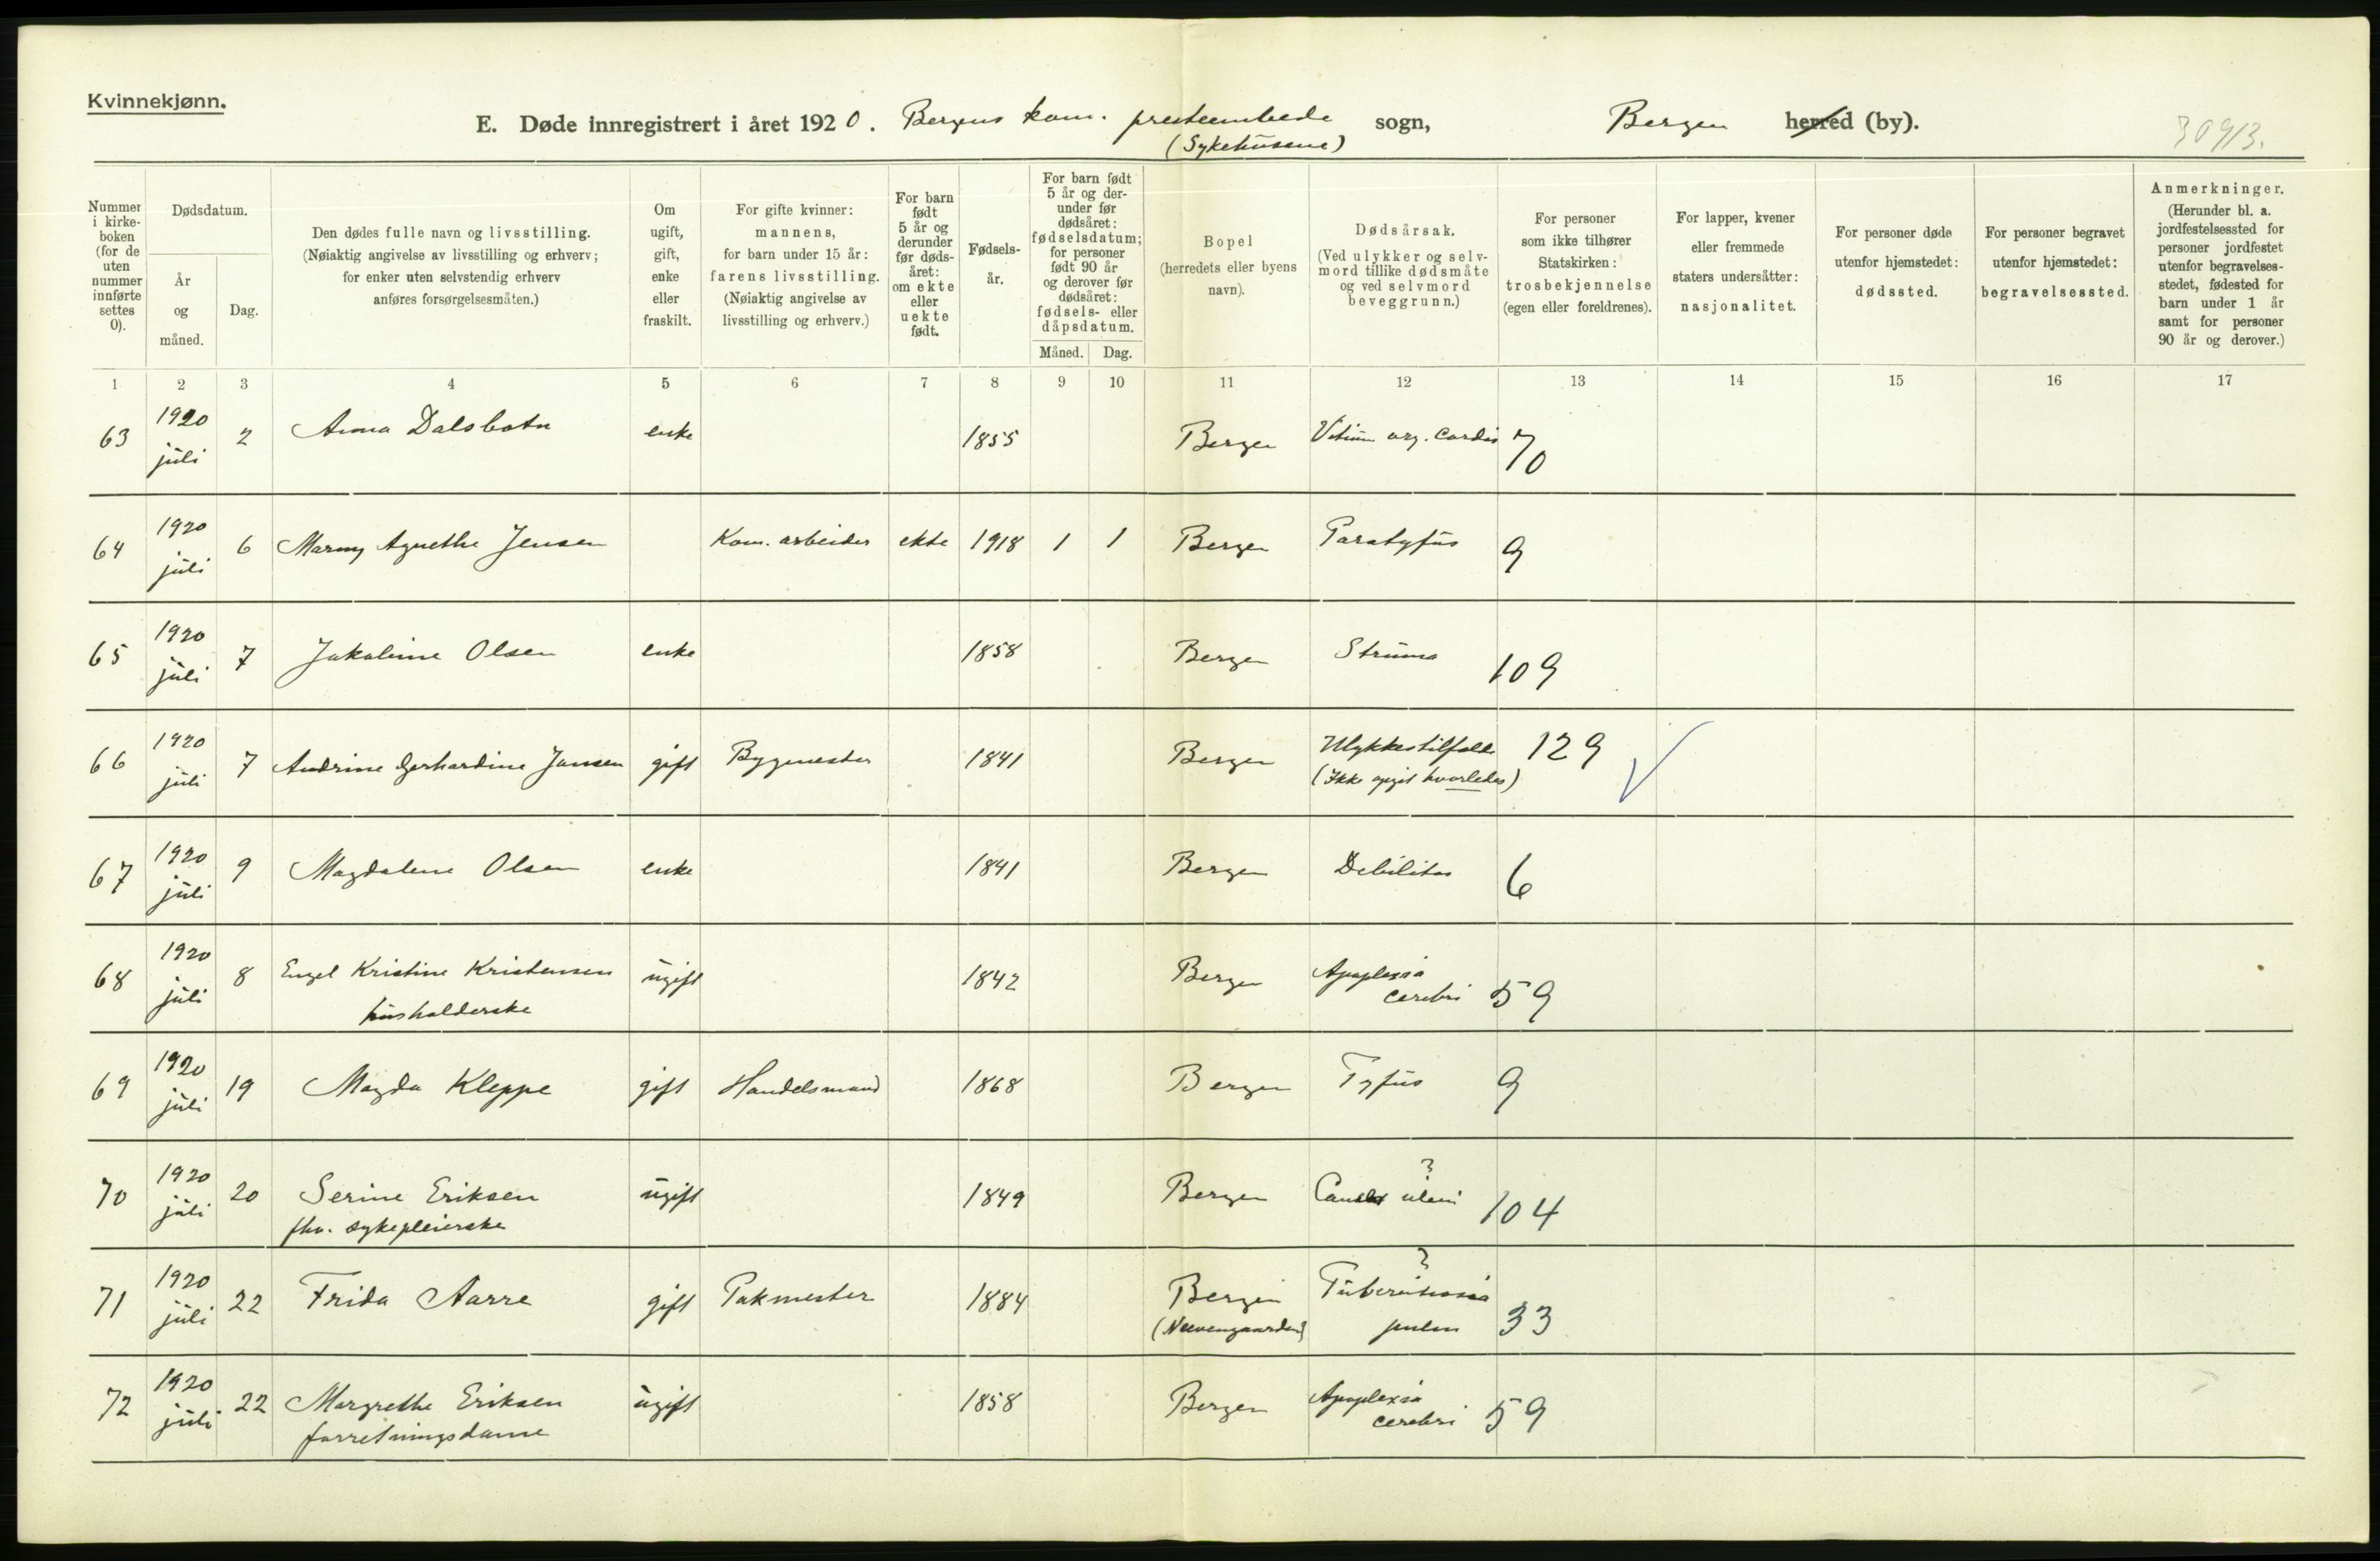 Kvinnekjønn.
E. Døde innregistrert i året 1920. Bergens kom. presteembede sogn, Bergen herred (by).
(Sykehusene)
30913.
Nummer i kirke-boken (for de uten nummer innførte settes 0).
Dødsdatum.
År og måned.
Dag.
Den dødes fulle navn og livsstilling.
(Nøiaktig angivelse av livsstilling og erhverv;
for enker uten selvstendig erhverv
anføres forsørgelsesmåten.)
Om ugift, gift, enke eller fraskilt.
For gifte kvinner:
mannens,
for barn under 15 år:
farens livsstilling.
(Nøiaktig angivelse av
livsstilling og erhverv.)
For barn født 5 år og derunder før døds-året: om ekte eller uekte født.
Fødsels-år.
For barn født 5 år og der-under før dødsåret: fødselsdatum; for personer født 90 år og derover før dødsåret: fødsels- eller dåpsdatum.
Måned. Dag.
Bopel
(herredets eller byens
navn).
Dødsårsak.
(Ved ulykker og selv-
mord tillike dødsmåte
og ved selvmord
beveggrunn.)
For personer
som ikke tilhører
Statskirken:
trosbekjennelse
(egen eller foreldrenes).
For lapper, kvener
eller fremmede
staters undersåtter:
nasjonalitet.
For personer døde
utenfor hjemstedet:
dødssted.
For personer begravet
utenfor hjemstedet:
begravelsessted.
Anmerkninger.
(Herunder bl. a.
jordfestelsessted for
personer jordfestet
utenfor begravelses-
stedet, fødested for
barn under 1 år
samt for personer
90 år og derover.)
1 2 3 4 5 6 7 8 9 10 11 12 13 14 15 16 17
63 1920 juli 2 Anna Dalsbotn enke 1855 Bergen Vitium org. cordis 70
64 1920 juli 6 Marny Agnethe Jensen Kom. arbeider ekte 1918 1 1 Bergen Paratyfus 9
65 1920 juli 7 Jakobine Olsen enke 1858 Bergen Struma 109
66 1920 juli 7 Andrine Gerhardine Jansen gift Bygmester 1841 Bergen Ulykkestilfælde 129
(Ikke opgit hvorledes)
67 1920 juli 9 Magdalene Olsen enke 1841 Bergen Debilitas 6
68 1920 juli 8 Engel Kristine Kristensen ugift 1842 Bergen Apoplexia cerebri 59
husholderske
69 1920 juli 19 Magda Kleppe gift Handelsmand 1868 Bergen Tyfus 9
70 1920 juli 20 Serine Eriksen ugift 1849 Bergen Cancer uteri ? 104
fhv. sykepleierske
71 1920 juli 22 Frida Aarre gift Pakmester 1884 Bergen Tuberculosia ? 33
(Neevengaarden) pulm
72 1920 juli 22 Margrethe Eriksen ugift 1858 Bergen Apoplexia cerebri 59
forretningsdame